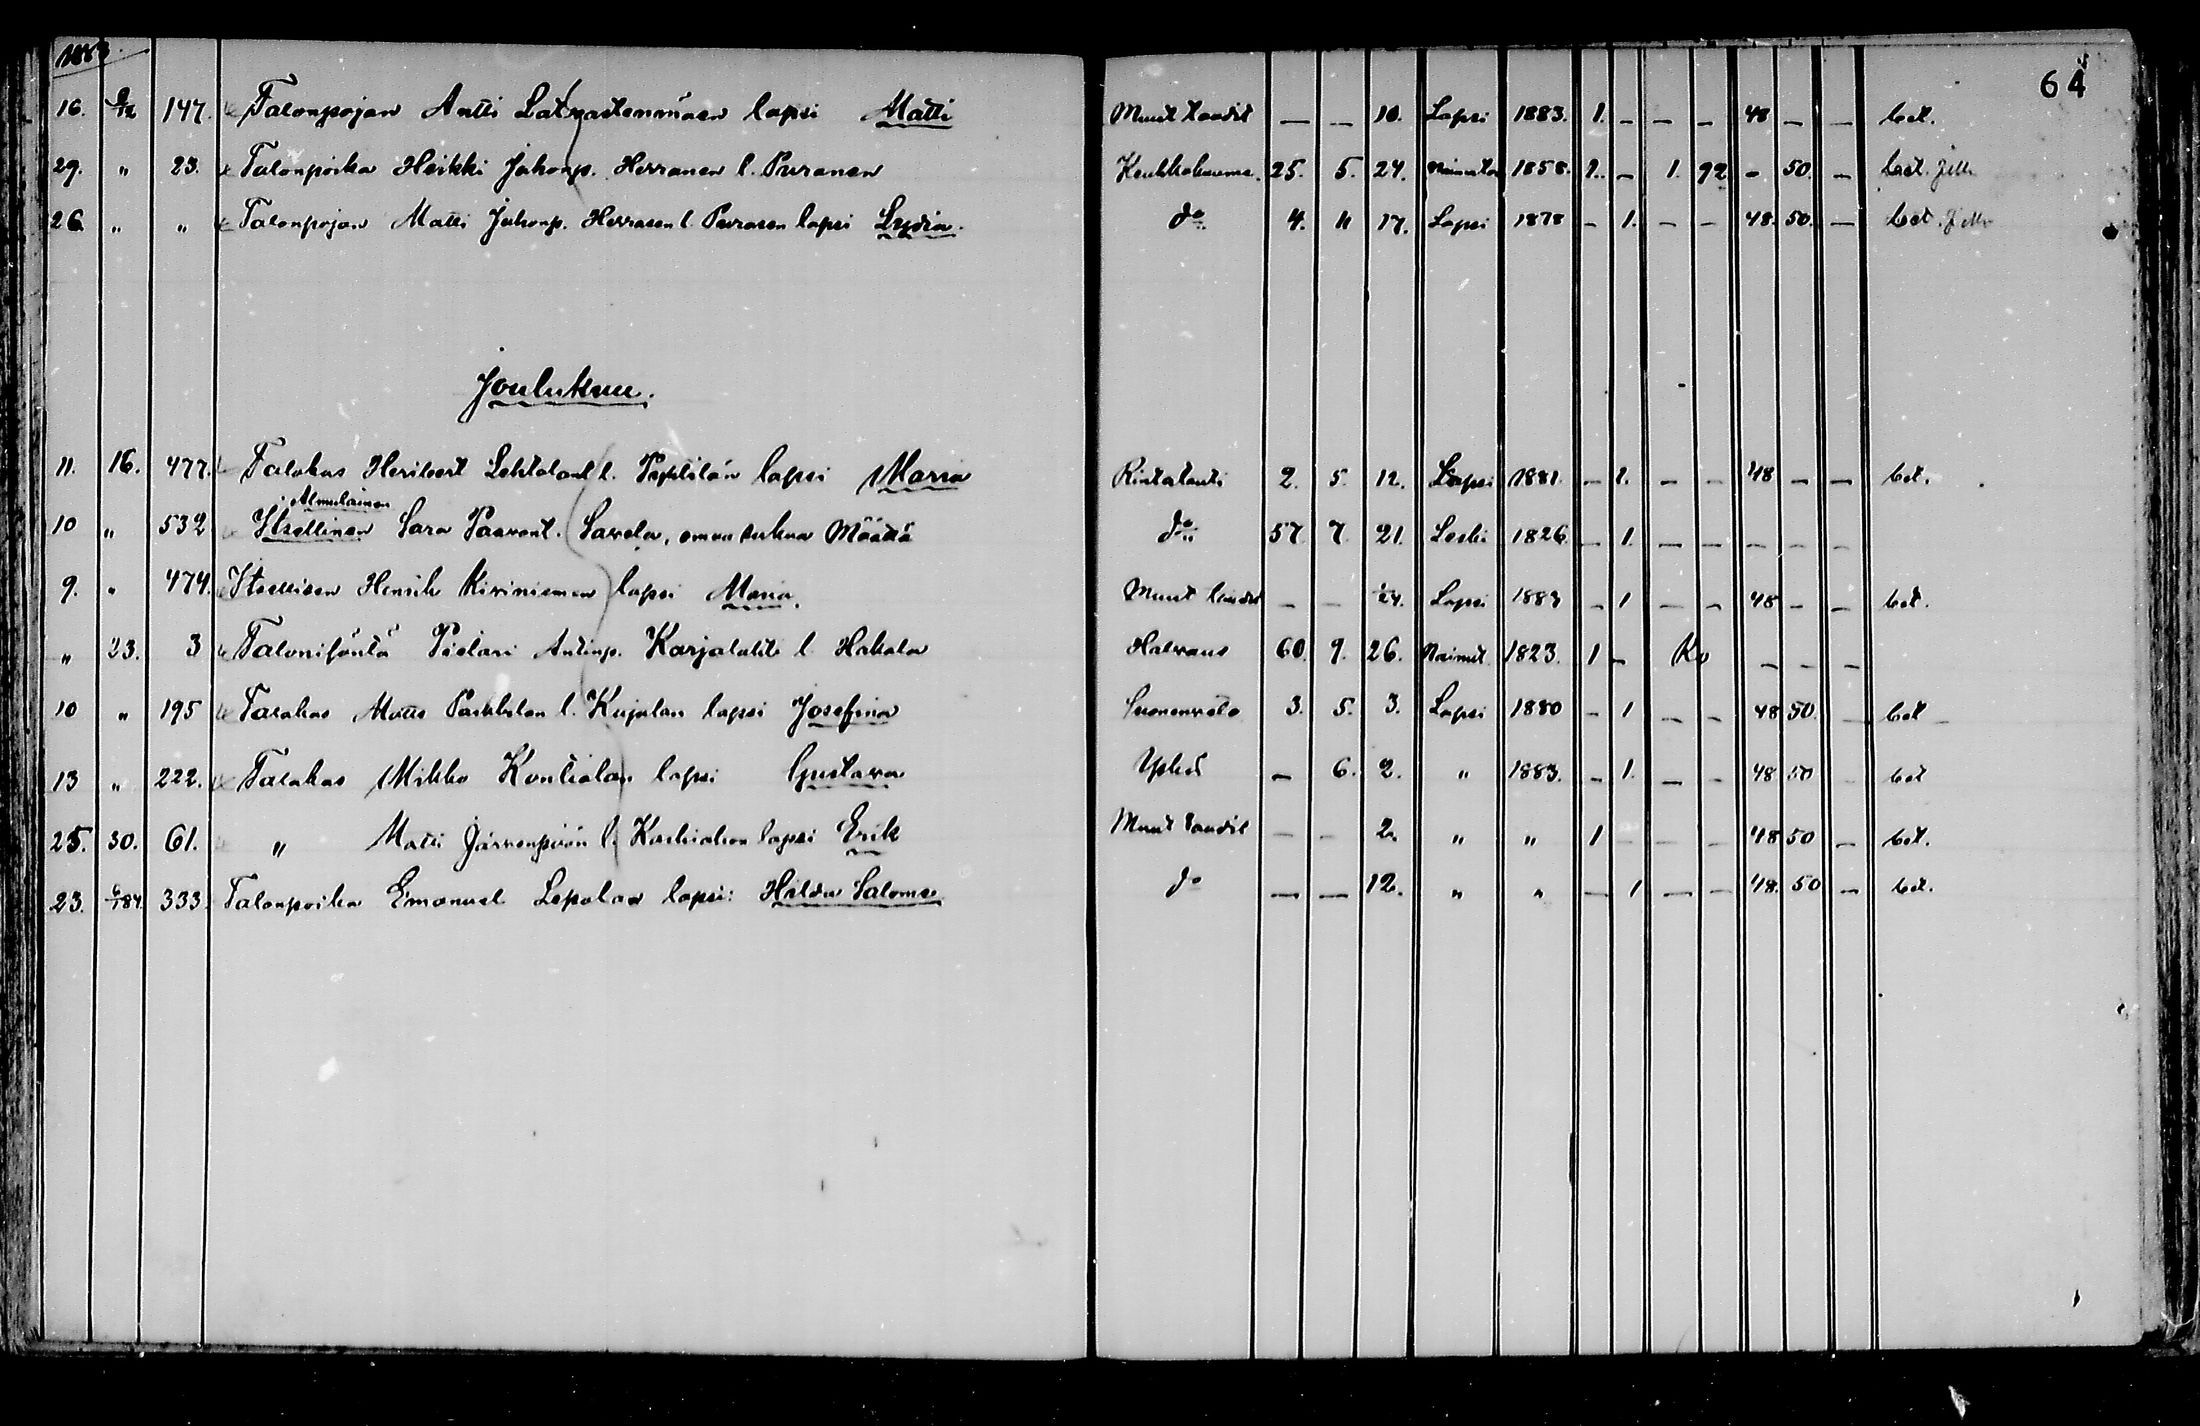 1883.
64
16. 9/12 147. Talonpojan Antti Latvastenmäen lapsi Matti Muut taudit — — 10. Lapsi 1883. 1. – – – 48 – – bet.
29. " 23. Talonpoika Heikki Juhonp. Herranen l. Puranen Keuhkokuume. 25. 5. 24. Naimaton 1858. 1. – 1. 92 – 50. – bet.
26 " " Talonpojan Matti Juhonp. Herrasen l. Purasen lapsi Lydia. do 4. 11 17. Lapsi 1878 – 1. – – 48. 50. – bet.
Joulukuu.
11. 16. 477. Talokas Heribert Lehtola l. lapsi Maria Rintatauti 2. 5. 12. Lapsi 1881. – 1. – – 48 – – bet.
Almulainen
10 " 532 Itsellinen Sara Paavont. Savela, omaa sukua Määttä do 57. 7. 21. Leski 1826. – 1. – – – – –
9. " 474. Itsellisen Henrik Kiviniemen lapsi Maria. Muut taudit – – 1/24. Lapsi 1883 – 1 – – 48 – – bet.
" 23. 3 Talonisäntä Antinp. Karjalahti l. Hakala Halvaus 60. 9. 26. Naimut. 1823. 1 – – – –
10 " 195 Talokas Matts Parkkilan l. Kujalan lapsi Josefina Suonenveto 3. 5. 3. Lapsi 1880 – 1 – – 48 50. – bet
13 " 222. Talokas Mikko Kontiolan lapsi Gustava – 6. 2. " 1883. – 1. – – 48 50 – bet
25. 30. 61. " Matti Järvenpään l. lapsi Erik Muut taudit – – 2. " " 1 – – – 48 50 – bet.
23. 6/1 84. 333. Talonpoika Emanuel Lepolan lapsi: Hilda Salome do — — 12. " " – 1 – – 48. 50 – bet.